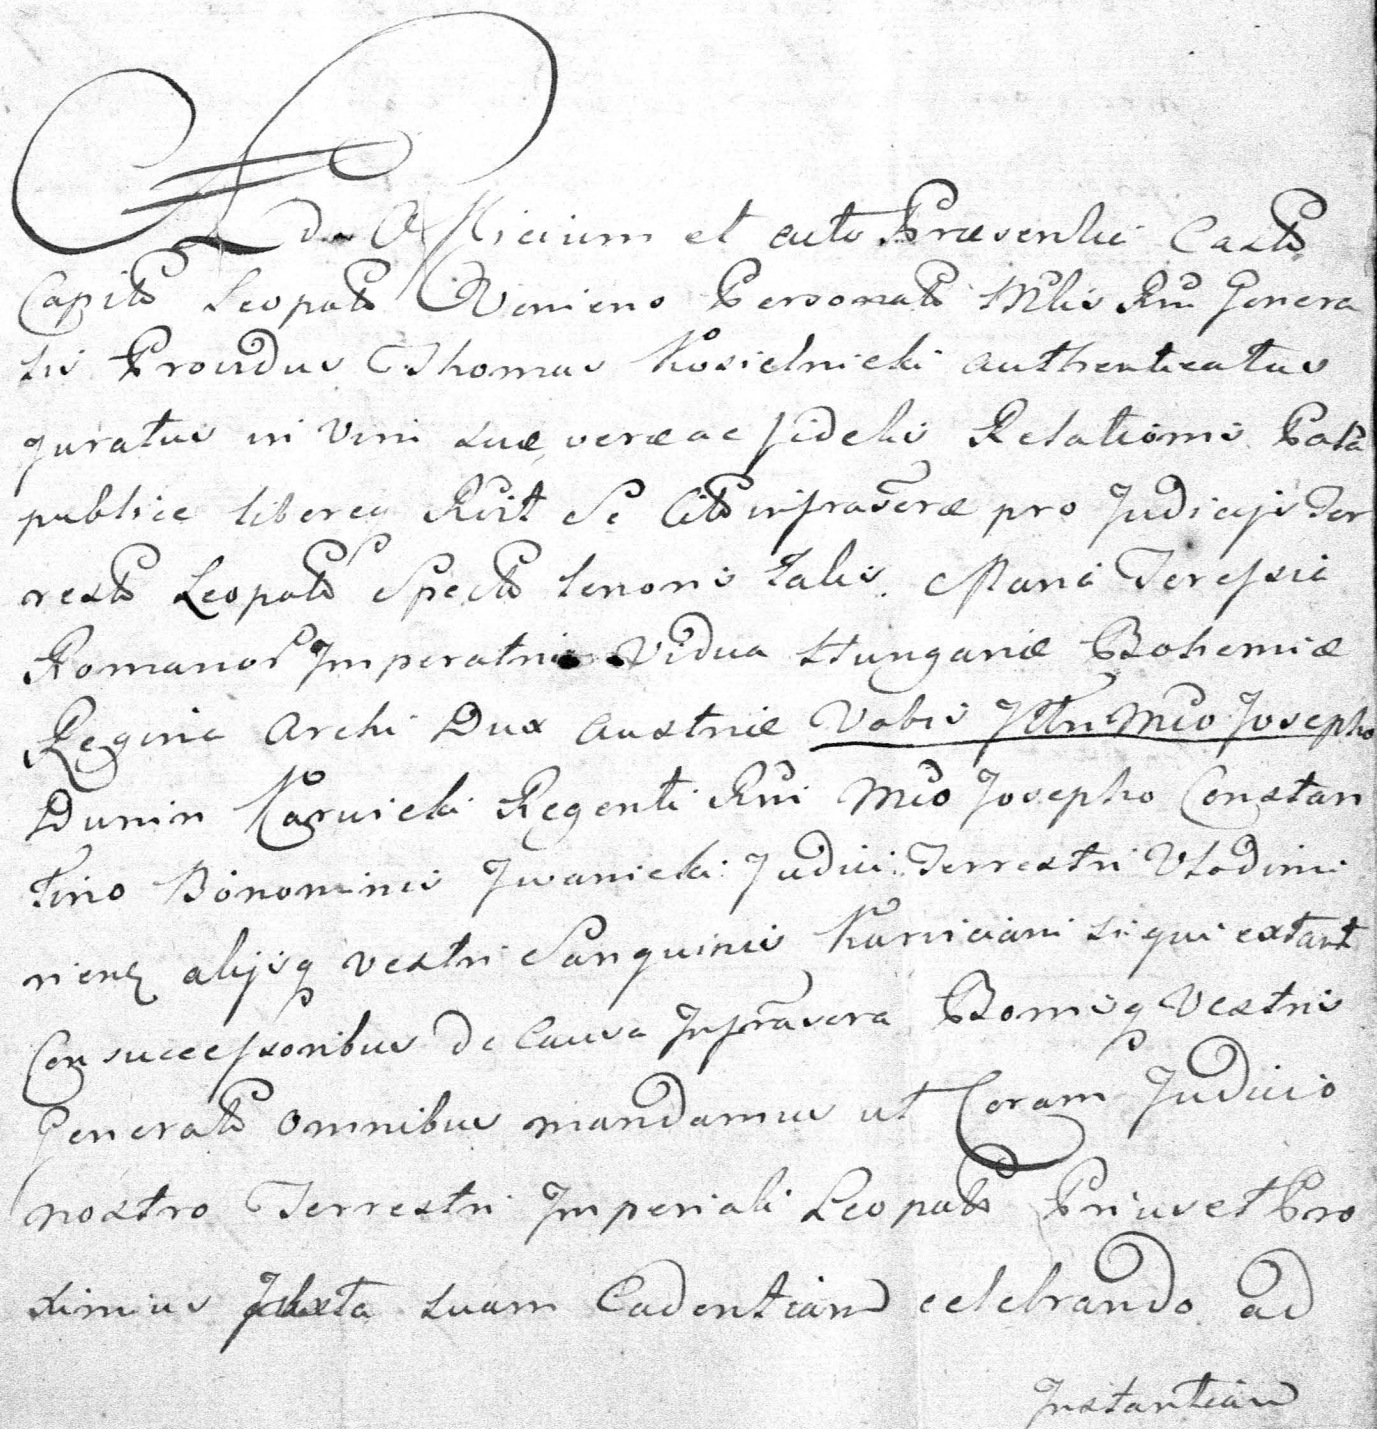 Ad Officium et acta Præsentia Castr
Capit Leopol Veniens Personalr Mlis Rni Genera
lis Providus Thomas Kosielnicki authenticatus
juratus in vim suæ veræ ac fidelis Relationis Palã
publice libereq Rcit Se Citõ infrascræ pro Judicijs Ter
restr Leopol Spectñ tenoris talis. Maria Teressia
Romanor Imperatrix Vidua Hungariæ Bohemiæ
Regina Archi Dux Austriæ Vobis Mco Josepho
Dunin Karwicki Regenti Rni Mco Josepho Constan
tino Binominis Iwanicki Judici Terrestri Vlodimi
rienz alijsq vestri Sanguinis Karviciani si qui extant
Con successoribus de Causa Infrascra Bonisq Vestris
Generalr omnibus mandamus ut Coram Judicio
nostro Terrestri Imperiali Leopol Prius et Pro
ximius juxta suam Cadentiam celebrando ad
Instantiam